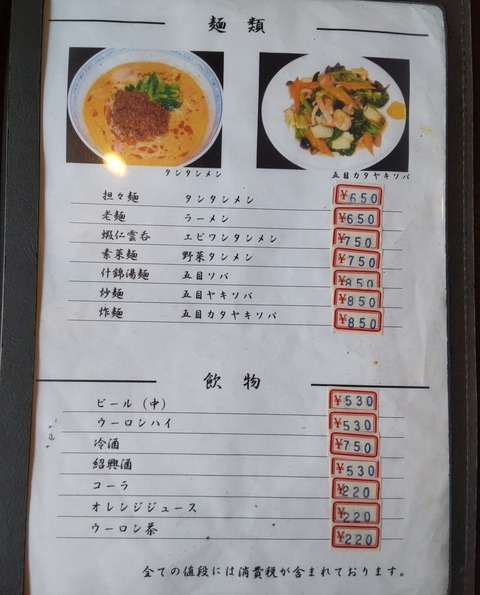 麺類
タンタンメン
五目カタヤキソバ
担々麺 タンタンメン ¥650
老麺 ラーメン ¥650
蝦仁雲呑 エビワンタンメン ¥750
素菜麺 野菜タンメン ¥750
什錦湯麺 五目ソバ ¥850
炒麺 五目ヤキソバ ¥850
炸麺 五目カタヤキソバ ¥850
飲物
ビール(中) ¥530
ウーロンハイ ¥530
冷酒 ¥750
紹興酒 ¥530
コーラ ¥220
オレンジジュース ¥220
ウーロン茶 ¥220
全ての値段には消費税が含まれております。